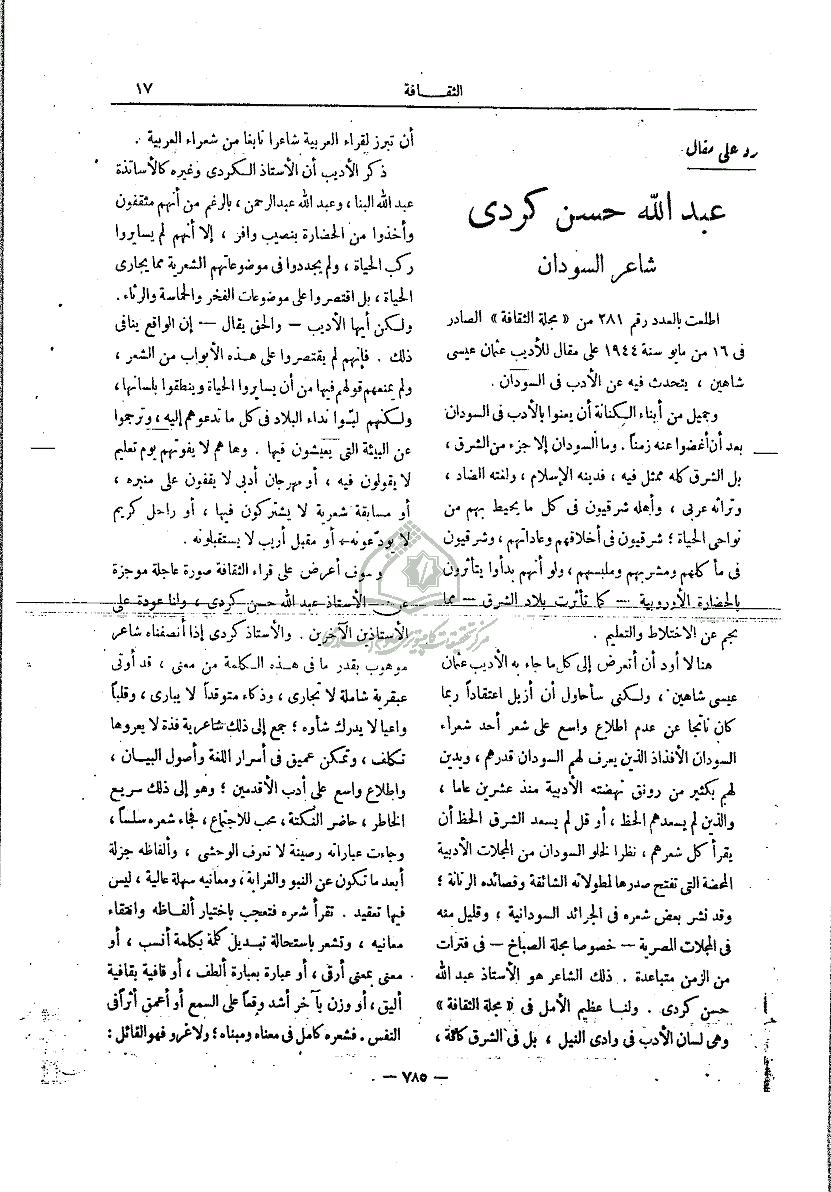 الثقافة
١٧
رد على مقال
عبد الله حسن كردى
شاعر السودان
اطلعت بالعدد رقم ٢٨١ من « مجلة الثقافة » الصادر
فى ١٦ من مايو سنة ١٩٤٤ على مقال للأديب عثمان عيسى
شاهين ، يتحدث فيه عن الأدب فى السودان .
وجميل من أبناء الكنانة أن يعنوا بالأدب فى السودان
بعد أن أغضوا عنه زمناً . وما السودان إلا جزء من الشرق ،
بل الشرق كله ممثل فيه ، فدينه الإسلام ، ولغته الضاد ،
وتراثه عربى ، وأهله شرقيون فى كل ما يحيط بهم من
نواحى الحياة ؛ شرقيون فى أخلاقهم وعاداتهم ، وشرقيون
فى مأكلهم ومشربهم وملبسهم ، ولو أنهم بدأوا يتأثرون
بالحضارة الأوروبية — كما تأثرت بلاد الشرق — مما
نجم عن الاختلاط والتعليم .
هنا لا أود أن أتعرض إلى كل ما جاء به الأديب عثمان
عيسى شاهين ، ولكنى سأحاول أن أزيل اعتقاداً ربما
كان ناتجا عن عدم اطلاع واسع على شعر أحد شعراء
السودان الأفذاذ الذين يعرف لهم السودان قدرهم ، ويدين
لهم بكثير من رونق نهضته الأدبية منذ عشرين عاما ،
والذين لم يسعدهم الحظ ، أو قل لم يسعد الشرق الحظ أن
يقرأ كل شعرهم ، نظرا لخلو السودان من المجلات الأدبية
المحضة التى تفتح صدرها لمطولاته الشائقة وقصائده الرنانة ؛
وقد نشر بعض شعره فى الجرائد السودانية ، وقليل منه
فى المجلات المصرية — خصوصا مجلة الصباح — فى فترات
من الزمن متباعدة . ذلك الشاعر هو الأستاذ عبد الله
حسن كردى . ولنا عظيم الأمل فى « مجلة الثقافة »
وهى لسان الأدب فى وادى النيل ، بل فى الشرق كافة ،
أن تبرز لقراء العربية شاعرا نابغا من شعراء العربية .
ذكر الأديب أن الأستاذ الكردى وغيره كالأساتذة
عبد الله البنا ، وعبد الله عبد الرحمن ، بالرغم من أنهم مثقفون
وأخذوا من الحضارة بنصيب وافر ، إلا أنهم لم يسايروا
ركب الحياة ، ولم يجددوا فى موضوعاتهم الشعرية مما يجارى
الحياة ، بل اقتصروا على موضوعات الفخر والحماسة والرثاء .
ولكن أيها الأديب — والحق يقال — إن الواقع ينافى
ذلك . فإنهم لم يقتصروا على هذه الأبواب من الشعر ،
ولم يمنعهم قولهم فيها من أن يسايروا الحياة وينطقوا بلسانها ،
ولكنهم لبّوا نداء البلاد فى كل ما تدعوهم إليه ، وترجموا
عن البيئة التى يعيشون فيها . وها هم لا يفوتهم يوم تعليم
لا يقولون فيه ، أو مهرجان أدبى لا يقفون على منبره ،
أو مسابقة شعرية لا يشتركون فيها ، أو راحل كريم
لا يودعونه ، أو مقبل أريب لا يستقبلونه .
وسوف أعرض على قراء الثقافة صورة عاجلة موجزة
عن الأستاذ عبد الله حسن كردى ، ولنا عودة على
الأستاذين الآخرين . والأستاذ كردى إذا أنصفناه شاعر
موهوب بقدر ما فى هذه الكلمة من معنى ، قد أوتى
عبقرية شاملة لا تجارى ، وذكاء متوقداً لا يبارى ، وقلباً
واعيا لا يدرك شأوه ؛ جمع إلى ذلك شاعرية فذة لا يعروها
تكلف ، وتمكن عميق فى أسرار اللغة وأصول البيان ،
واطلاع واسع على أدب الأقدمين ؛ وهو إلى ذلك سريع
الخاطر ، حاضر النكتة ، محب للاجتماع ، فجاء شعره سلساً ،
وجاءت عباراته رصينة لا تعرف الوحشى ، وألفاظه جزلة
أبعد ما تكون عن النبو والغرابة ، ومعانيه سهلة عالية ، ليس
فيها تعقيد . تقرأ شعره فتعجب باختيار ألفاظه وانتقاء
معانيه ، وتشعر باستحالة تبديل كلمة بكلمة أنسب ، أو
معنى بمعنى أرقى ، أو عبارة بعبارة ألطف ، أو قافية بقافية
أليق ، أو وزن بآخر أشد وقعاً على السمع أو أعمق أثراً فى
النفس . فشعره كامل فى معناه ومبناه ؛ ولا غرو فهو القائل :
— ٧٨٥ —